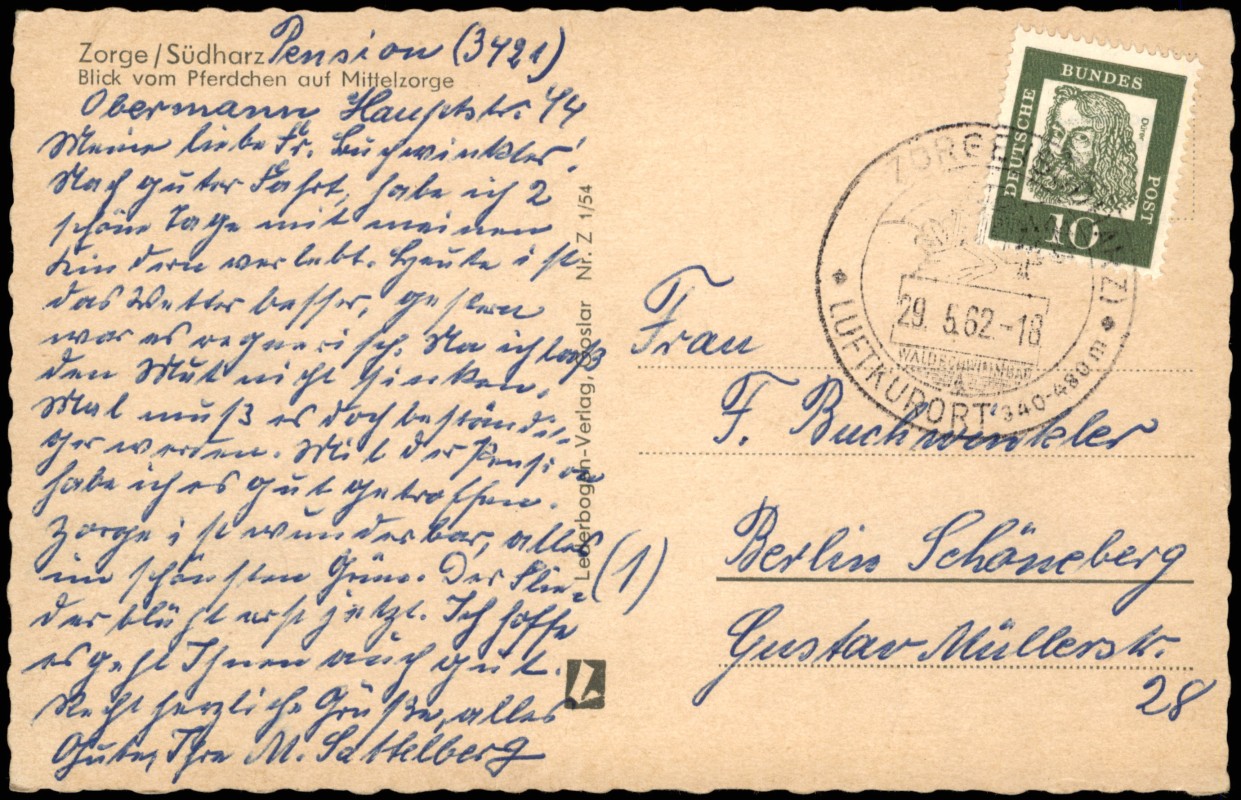 Zorge/Südharz Pension (3421)
Blick vom Pferdchen auf Mittelzorge
Obermann Hauptstr. 44
Meine liebe Fr. Buchwinkler!
Nach guter Fahrt, habe ich 2
schöne Tage mit meinen
Kindern verlebt. Heute ist
das Wetter besser, gestern
war es regnerisch. Na ich laß
den Mut nicht sinken.
Mal muß es doch beständi-
ger werden. Mit der Pension
habe ich es gut getroffen.
Zorge ist wunderbar, alles
im schönsten Grün. Der Flie-
der blüht erst jetzt. Ich hoffe
es geht Ihnen auch gut.
Recht herzliche Grüße, alles
Gute, Ihre M. Sattelberg
Lederbogen-Verlag, Goslar Nr. Z 1/54
DEUTSCHE BUNDES POST
Dürer
10
ZORGE
29. 5.62-18
LUFTKURORT 340-480m
Frau
F. Buchwinkler
(1) Berlin Schöneberg
Gustav Müllerstr.
28